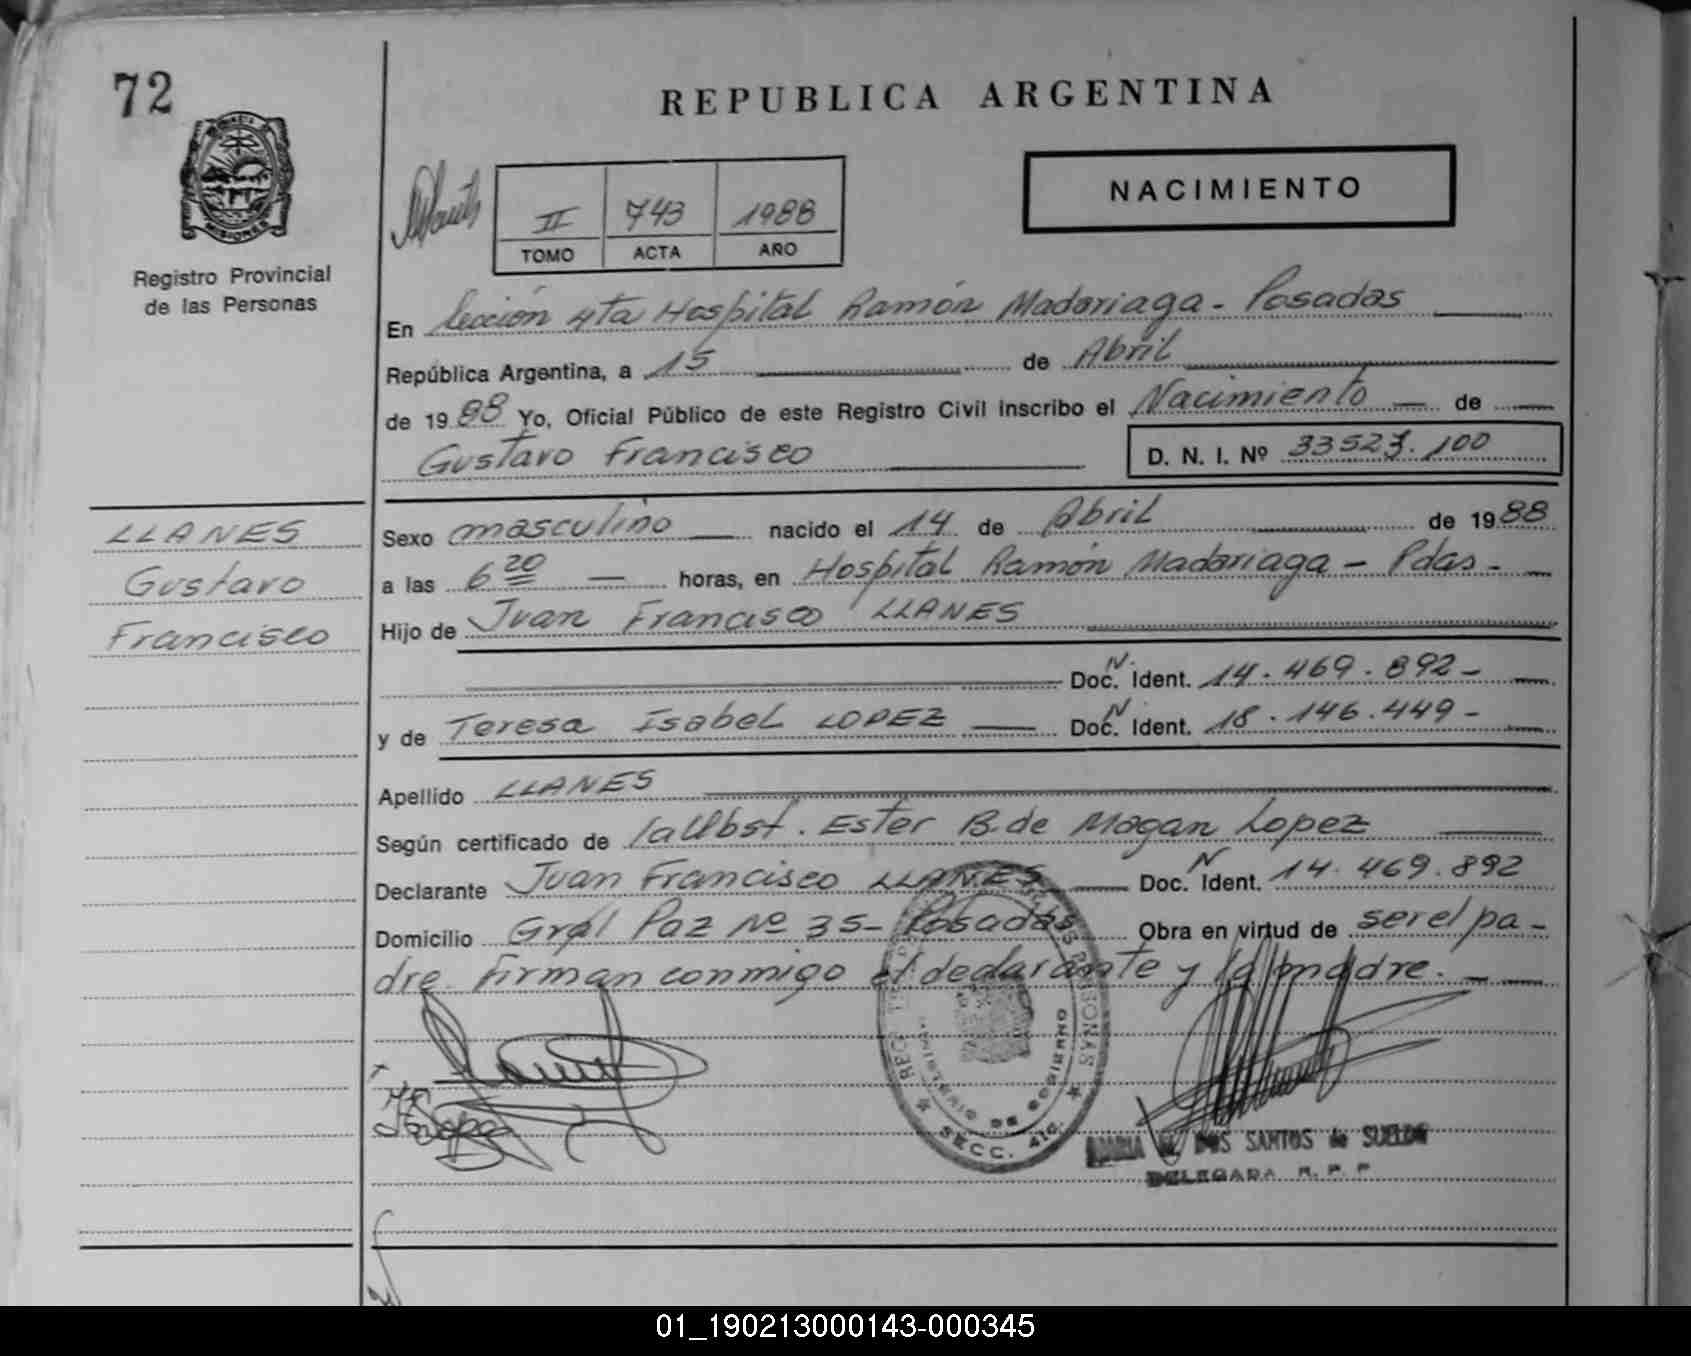 72
REPUBLICA ARGENTINA
PROVINCIA DE MISIONES
Registro Provincial
de las Personas
II 743 1988
TOMO ACTA AÑO
NACIMIENTO
En Sección 4ta Hospital Ramón Madariaga - Posadas
República Argentina, a 15 de Abril
de 1988 Yo, Oficial Público de este Registro Civil inscribo el Nacimiento de
Gustavo Francisco D. N. I. Nº 33523.100
LLANES
Gustavo
Francisco
Sexo masculino nacido el 14 de Abril de 1988
a las 6 20 horas, en Hospital Ramón Madariaga - Pdas -
Hijo de Juan Francisco LLANES
Doc. N. Ident. 14.469.892-
y de Teresa Isabel LOPEZ Doc. N Ident. 18.146.449-
Apellido LLANES
Según certificado de la Obst. Ester B. de Magan Lopez
Declarante Juan Francisco LLANES Doc. N Ident. 14.469.892
Domicilio Gral Paz Nº 35- Posadas Obra en virtud de ser el pa-
dre. Firman conmigo el declarante y la madre.
MINISTERIO DE GOBIERNO
SECC. 4ta.
DOS SANTOS de SUELDO
DELEGADA R. P. P.
01_190213000143-000345